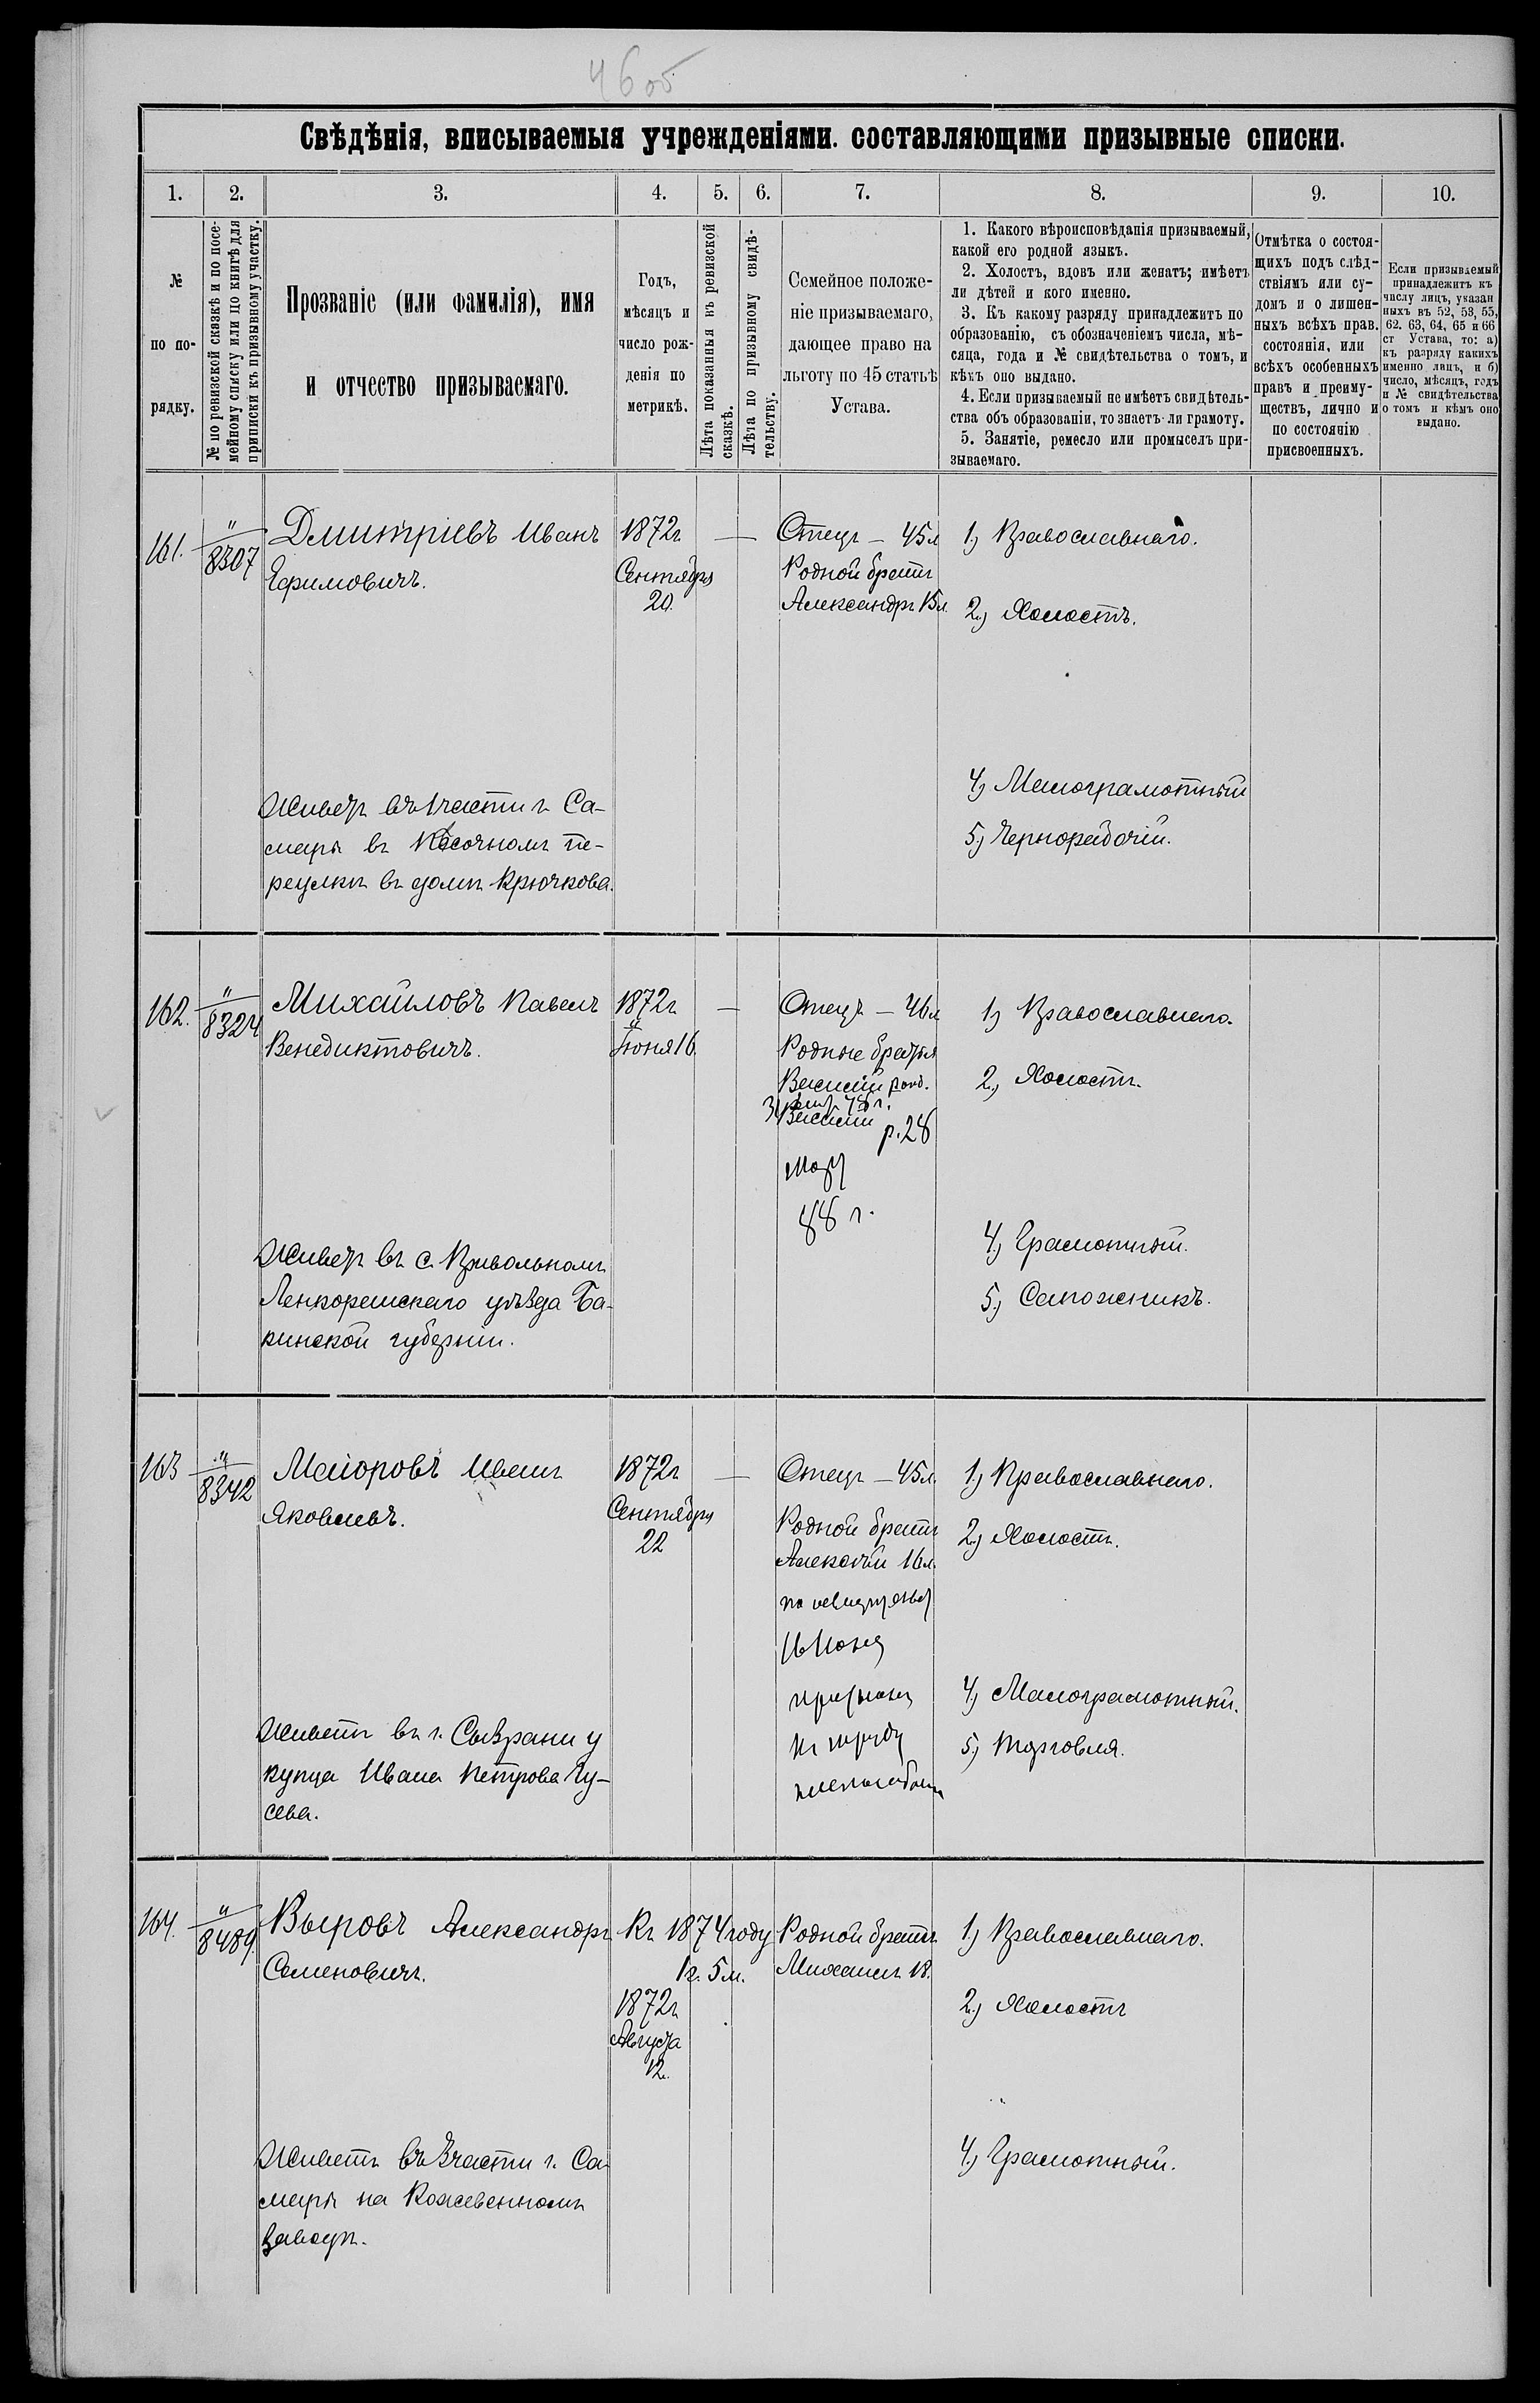 46 об
Свѣдѣнія, вписываемыя учрежденіями. составляющими призывные списки.
1. 2. 3. 4. 5. 6. 7. 8. 9. 10.
№
по по-
рядку.
№ по ревизской сказкѣ и по посе-
мейному списку или по книгѣ для
приписки къ призывному участку.
Прозваніе (или фамилія), имя
и отчество призываемаго.
Годъ,
мѣсяцъ и
число рож-
денія по
метрикѣ.
Лѣта показанныя къ ревизской
сказкѣ.
Лѣта по призывному свидѣ-
тельству.
Семейное положе-
ніе призываемаго,
дающее право на
льготу по 45 статьѣ
Устава.
1. Какого вѣроисповѣданія призываемый,
какой его родной языкъ.
2. Холостъ, вдовъ или женатъ; имѣетъ
ли дѣтей и кого именно.
3. Къ какому разряду принадлежитъ по
образованію, съ обозначеніемъ числа, мѣ-
сяца, года и № свидѣтельства о томъ, и
кѣмъ оно выдано.
4. Если призываемый не имѣетъ свидѣтель-
ства объ образованіи, то знаетъ ли грамоту.
5. Занятіе, ремесло или промыселъ при-
зываемаго.
Отмѣтка о состоя-
щихъ подъ слѣд-
ствіямъ или су-
домъ и о лишен-
ныхъ всѣхъ прав.
состоянія, или
всѣхъ особенныхъ
правъ и преиму-
ществъ, лично и
по состоянію
присвоенныхъ.
Если призываемый
принадлежитъ къ
числу лицъ, указан
ныхъ въ 52, 53, 55,
62. 63, 64, 65 и 66
ст Устава, то: а)
къ разряду какихъ
именно лицъ, и б)
число, мѣсяцъ, годъ
и № свидѣтельства
о томъ и кѣмъ оно
выдано.
161.
"
8307
Дмитріевъ Иванъ
Ефимовичъ.
1872г.
Сентября
20.
—
Отецъ — 45л
Родной братъ
Александръ 15л.
1) Православнаго.
2) Холостъ.
4) Малограмотный
5) Чернорабочій.
Живетъ въ 1 части г. Са-
мары въ Песочномъ пе-
реулкѣ въ домѣ Крючкова.
162.
"
8324
Михайловъ Павелъ
Венедиктовичъ.
1872г
Іюня 16.
—
Отецъ — 46л
Родные братья
Василій
Василій р. 28
88 г.
1) Православнаго.
2) Холостъ.
4) Грамотный.
5) Сапожникъ.
Живетъ въ с. Привольномъ
Ленкоранскаго уѣзда Ба-
кинской губерніи.
163
"
8342
Маіоровъ Иванъ
Яковлевъ.
1872г
Сентября
22
—
Отецъ — 45л.
Родной братъ
Алексѣй 16л.
1) Православнаго.
2) Холостъ.
4) Малограмотный.
5) Торговля.
Живетъ въ г. Сызрани у
купца Ивана Петрова Гу-
сева.
164.
"
8489.
Выровъ Александръ
Семеновичъ.
Къ 1874 году
1г. 5м.
1872г
Августа
12.
Родной братъ
Михаилъ 18.
1) Православнаго.
2) Холостъ
4) Грамотный.
Живетъ въ 3 части г. Са-
мары на Кожевенномъ
заводѣ.